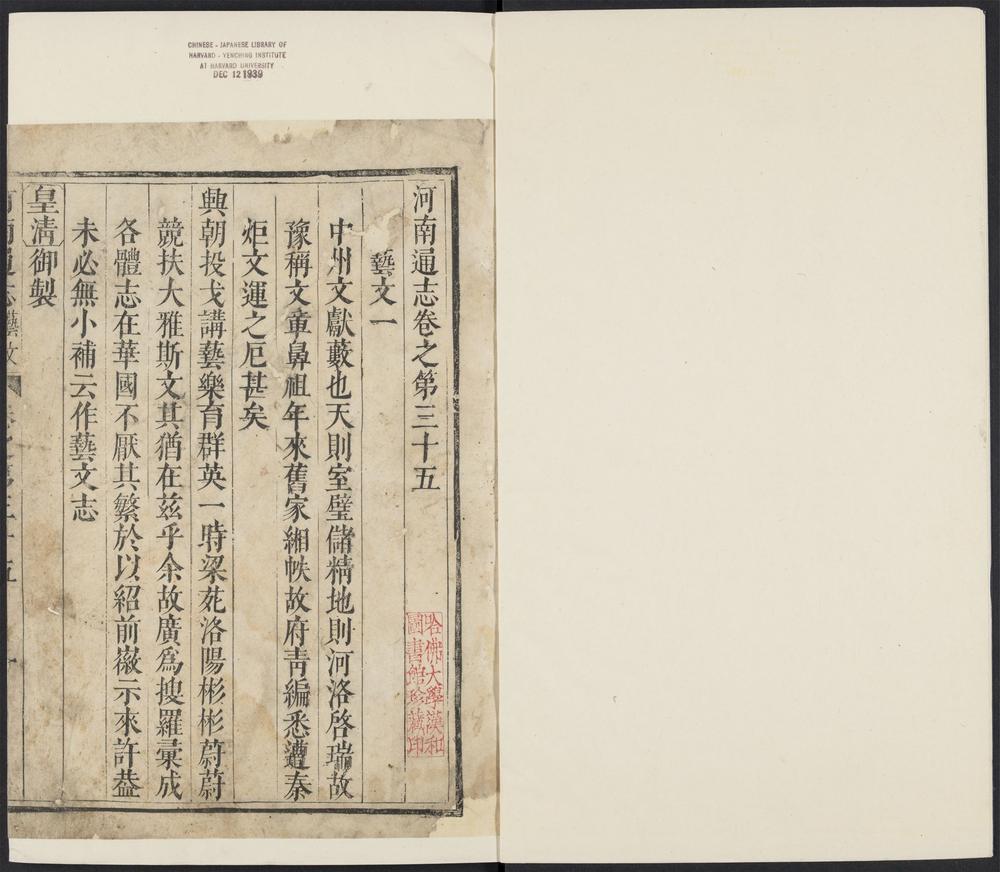 CHINESE - JAPANESE LIBRARY OF
HARVARD - YENCHING INSTITUTE
AT HARVARD UNIVERSITY
DEC 12 1939
河南通志卷之第三十五
哈佛大學漢和
圖書館珍藏印
藝文一
中州文獻藪也天則室壁儲精地則河洛啓瑞故
豫稱文章鼻祖年來舊家緗帙故府青編悉遭秦
炬文運之厄甚矣
興朝投戈講藝樂育群英一時梁苑洛陽彬彬蔚蔚
競扶大雅斯文其猶在茲乎余故廣爲搜羅彙成
各體志在華國不厭其繁於以紹前徽示來許葢
未必無小補云作藝文志
皇清御製
河南通志藝文 卷之第三十五 一